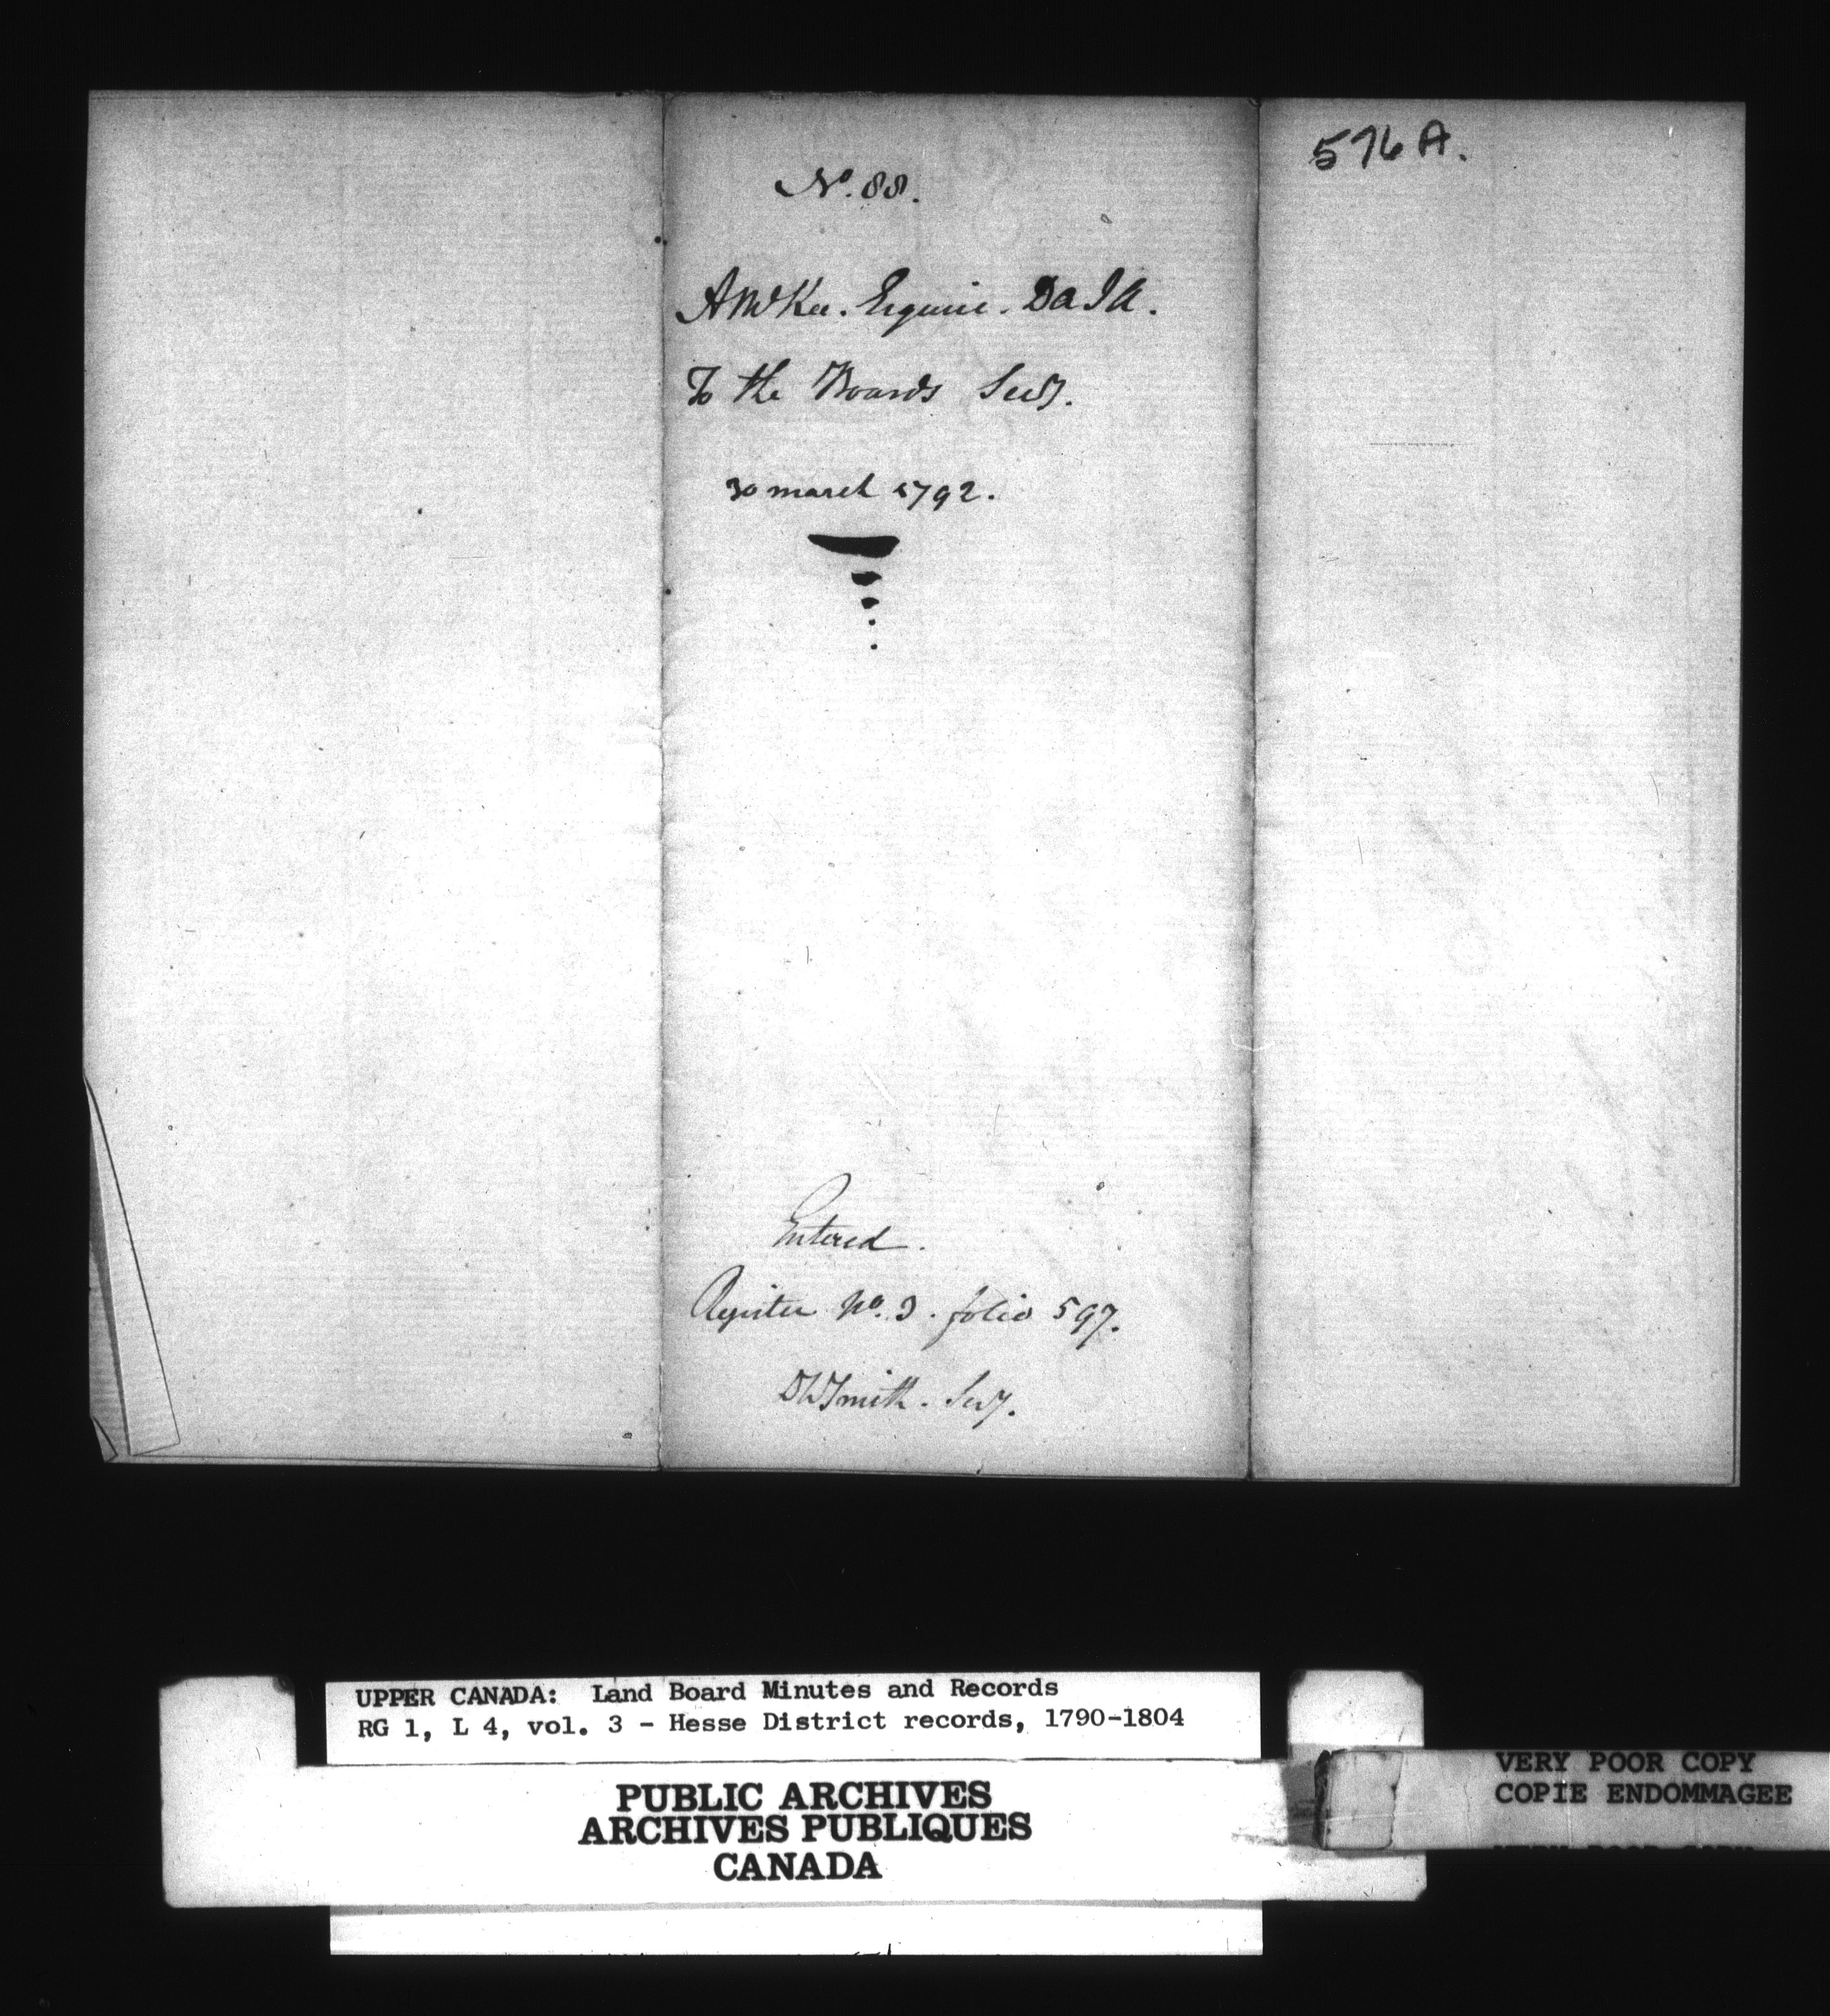 576 A.
No. 88.
A McKee. Esquire. D A I A.
To the Boards Secy.
30 march 1792.
Entered.
Register No. 3. folio 597.
DWSmith. Secy.
UPPER CANADA: Land Board Minutes and Records
RG 1, L 4, vol. 3 - Hesse District records, 1790-1804
PUBLIC ARCHIVES
ARCHIVES PUBLIQUES
CANADA
VERY POOR COPY
COPIE ENDOMMAGEE
VERY POOR COPY